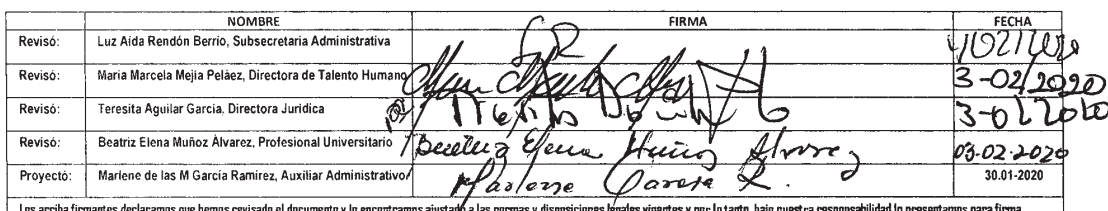 NOMBRE FIRMA FECHA
Revisó: Luz Aida Rendón Berrio, Subsecretaria Administrativa
Revisó: Maria Marcela Mejia Peláez, Directora de Talento Humano 3-02/2020
Revisó: Teresita Aguilar García, Directora Jurídica
Revisó: Beatriz Elena Muñoz Álvarez, Profesional Universitario Beatriz Elena Muñoz Alvarez 03-02-2020
Proyectó: Marlene de las M García Ramírez, Auxiliar Administrativo Marlene Garcia R. 30.01-2020
Los arriba firmantes declaramos que hemos revisado el documento y lo encontramos ajustado a las normas y disposiciones legales vigentes y por lo tanto, bajo nuestra responsabilidad lo presentamos para firma